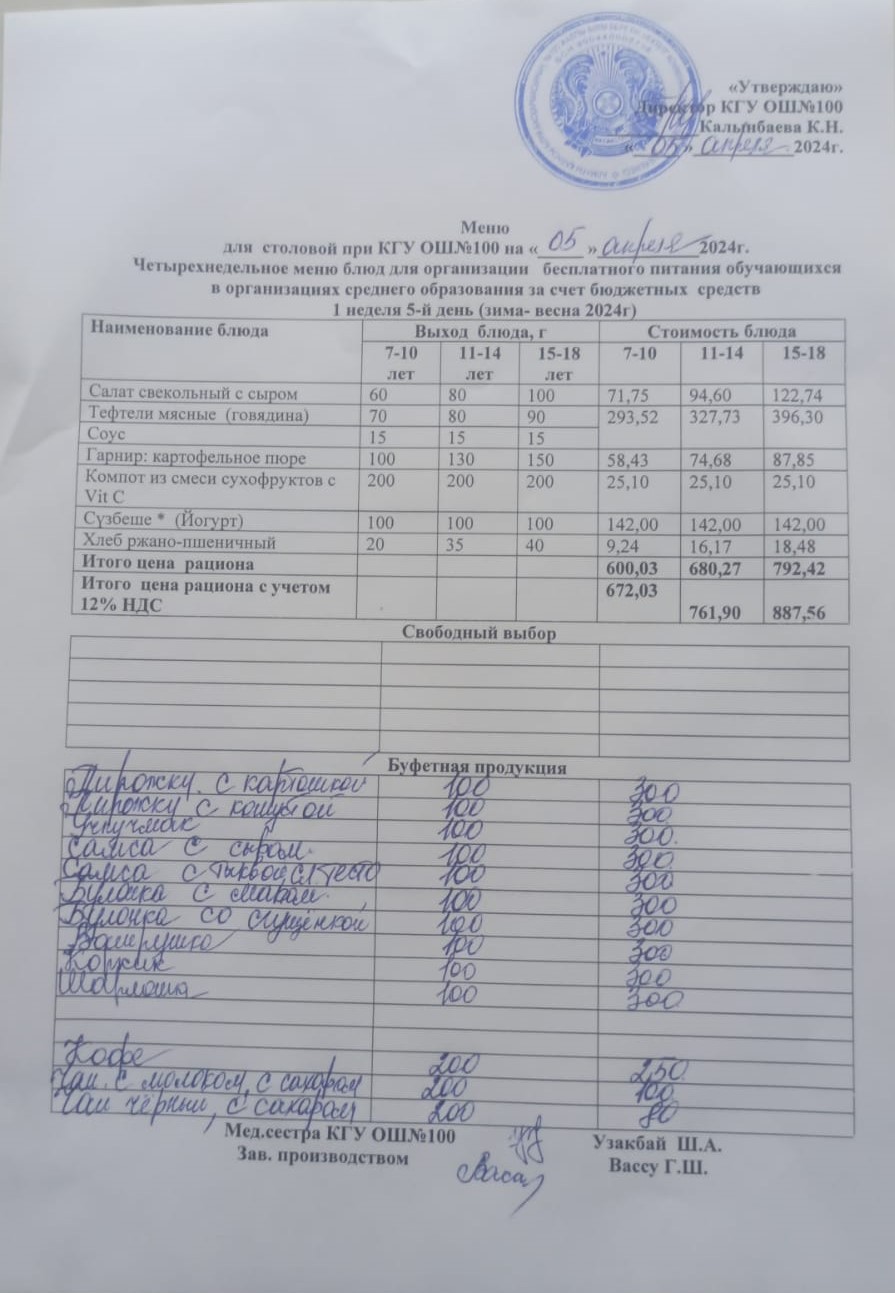 «Утверждаю»
Директор КГУ ОШ№100
Калынбаева К.Н.
« 05 » апреля 2024г.
Меню
для столовой при КГУ ОШ№100 на « 05 » апреля 2024г.
Четырехнедельное меню блюд для организации бесплатного питания обучающихся
в организациях среднего образования за счет бюджетных средств
1 неделя 5-й день (зима- весна 2024г)
Наименование блюда Выход блюда, г Стоимость блюда
7-10 лет 11-14 лет 15-18 лет 7-10 11-14 15-18
Салат свекольный с сыром 60 80 100 71,75 94,60 122,74
Тефтели мясные (говядина) 70 80 90 293,52 327,73 396,30
Соус 15 15 15
Гарнир: картофельное пюре 100 130 150 58,43 74,68 87,85
Компот из смеси сухофруктов с 200 200 200 25,10 25,10 25,10
Vit C
Сүзбеше * (Йогурт) 100 100 100 142,00 142,00 142,00
Хлеб ржано-пшеничный 20 35 40 9,24 16,17 18,48
Итого цена рациона 600,03 680,27 792,42
Итого цена рациона с учетом 672,03
12% НДС 761,90 887,56
Свободный выбор
Буфетная продукция
Пирожку с картошкой 100 300
Пирожку с капустой 100 300
Учпучмак 100 300
Самса с сыром 100 300
Самса с тыквой сл тесто 100 300
Булочка с маком 100 300
Булочка со сгущенкой 100 300
Ватрушка 100 300
Коржик 100 300
Шарлотка 100 300
Кофе 200 250
Чай с молоком, с сахаром 200 100
Чай чёрный, с сахаром 200 80
Мед.сестра КГУ ОШ№100 Узакбай Ш.А.
Зав. производством Вассу Г.Ш.